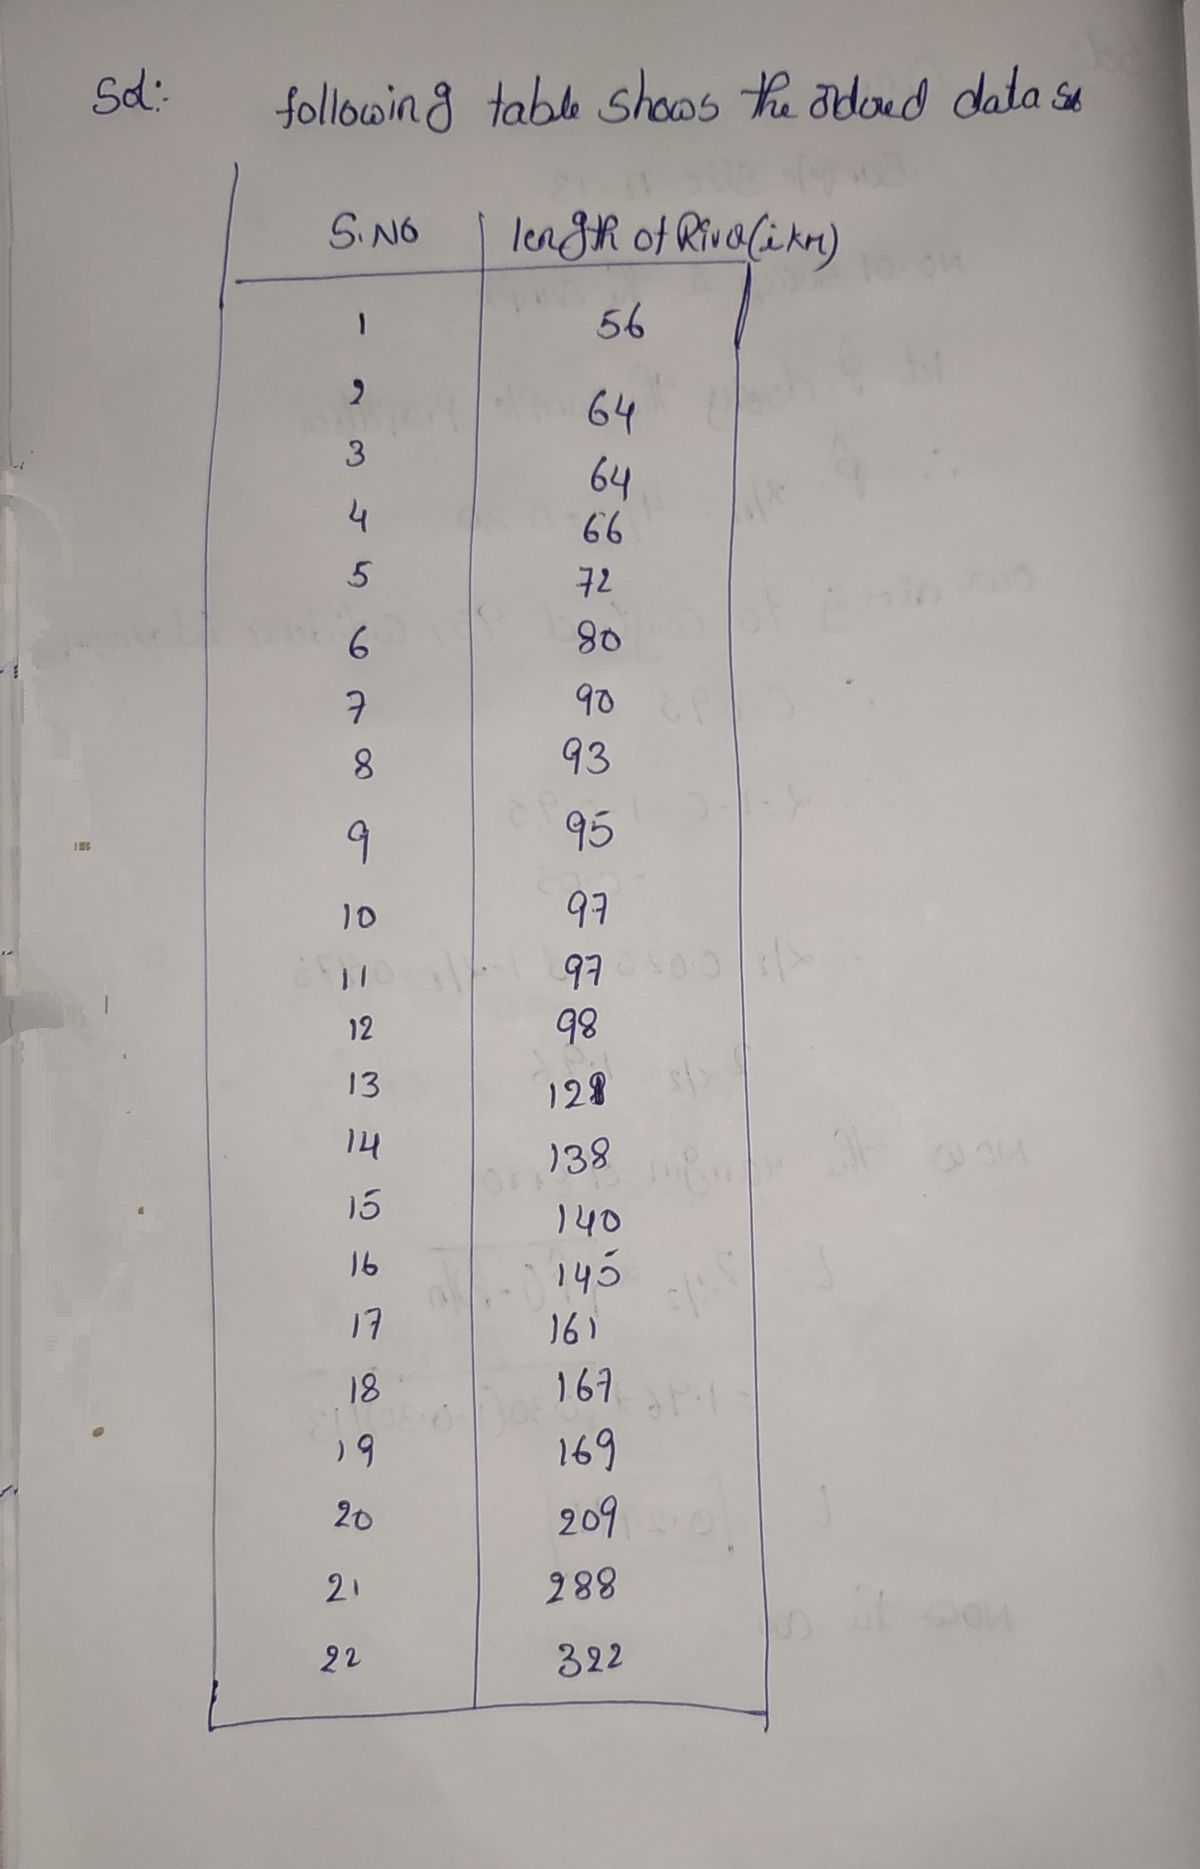 Sol:    following table shows the ordered data set
S.NO    length of River (i km)
1    56
2    64
3    64
4    66
5    72
6    80
7    90
8    93
9    95
10    97
11    97
12    98
13
14    138
15    140
16    145
17    161
18    167
19    169
20    209
21    288
22    322